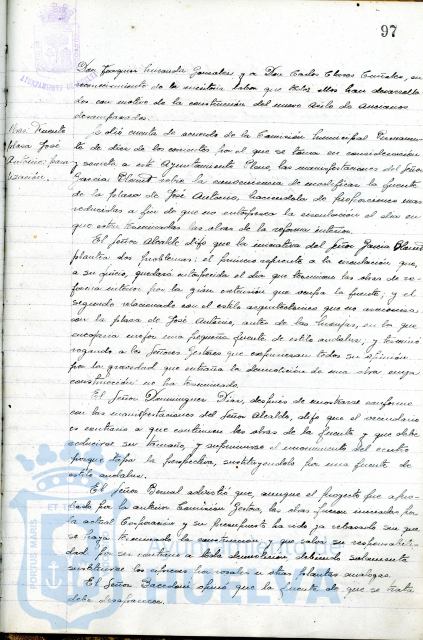 97
AYUNTAMIENTO
Don Joaquín González y a Don Carlos en
reconocimiento de la meritoria labor que todos ellos han desarrolla-
do con motivo de la construcción del nuevo Asilo de Ancianos
desamparados.
plaza José
Antonio, para
Se dió cuenta de acuerdo de la Comisión Municipal Permanen-
te de diez de los corrientes por el que se toma en consideración
y somete a este Ayuntamiento Pleno, las manifestaciones del Señor
García sobre la conveniencia de modificar la fuente
de la plaza de José Antonio, haciéndola de proporciones mas
reducidas a fin de que no entorpezca la circulación el dia en
que estén terminadas las obras de la reforma interior.
El Señor Alcalde dijo que la iniciativa del Señor García
plantea dos problemas: el primero referente a la circulación que,
a su juicio, quedará entorpecida el dia que terminen las obras de re-
forma interior por la gran extensión que ocupa la fuente, y el
segundo relacionado con el estilo arquitectónico que no armoniza
con la plaza de José Antonio, antes de las Monjas, en la que
encajaria mejor una pequeña fuente de estilo andaluz, y terminó
rogando a los Señores Gestores que expusieran todos su opinión
por la gravedad que entraña la demolición de una obra cuya
construcción no ha terminado.
El Señor Domínguez Díaz, después de mostrarse conforme
con las manifestaciones del Señor Alcalde, dijo que el vecindario
es contrario a que continuen las obras de la fuente y que debe
reducirse su tamaño, y suprimirse el monumento del centro
porque tapa la perspectiva, sustituyéndolo por una fuente de
estilo andaluz.
El Señor Bernal advirtió que, aunque el proyecto fue apro-
bado por la anterior Comisión Gestora, las obras fueron iniciadas por
la actual Corporación y su presupuesto ha sido ya rebasado sin que
se haya terminado la construcción y que salva su responsabili-
dad por ser contrario a toda demolición debiendo solamente
sustituirse los por rosales u otras plantas análogas.
El Señor opinó que la fuente de que se trata
debe desaparecer.
PORTUS MARIS
HUELVA